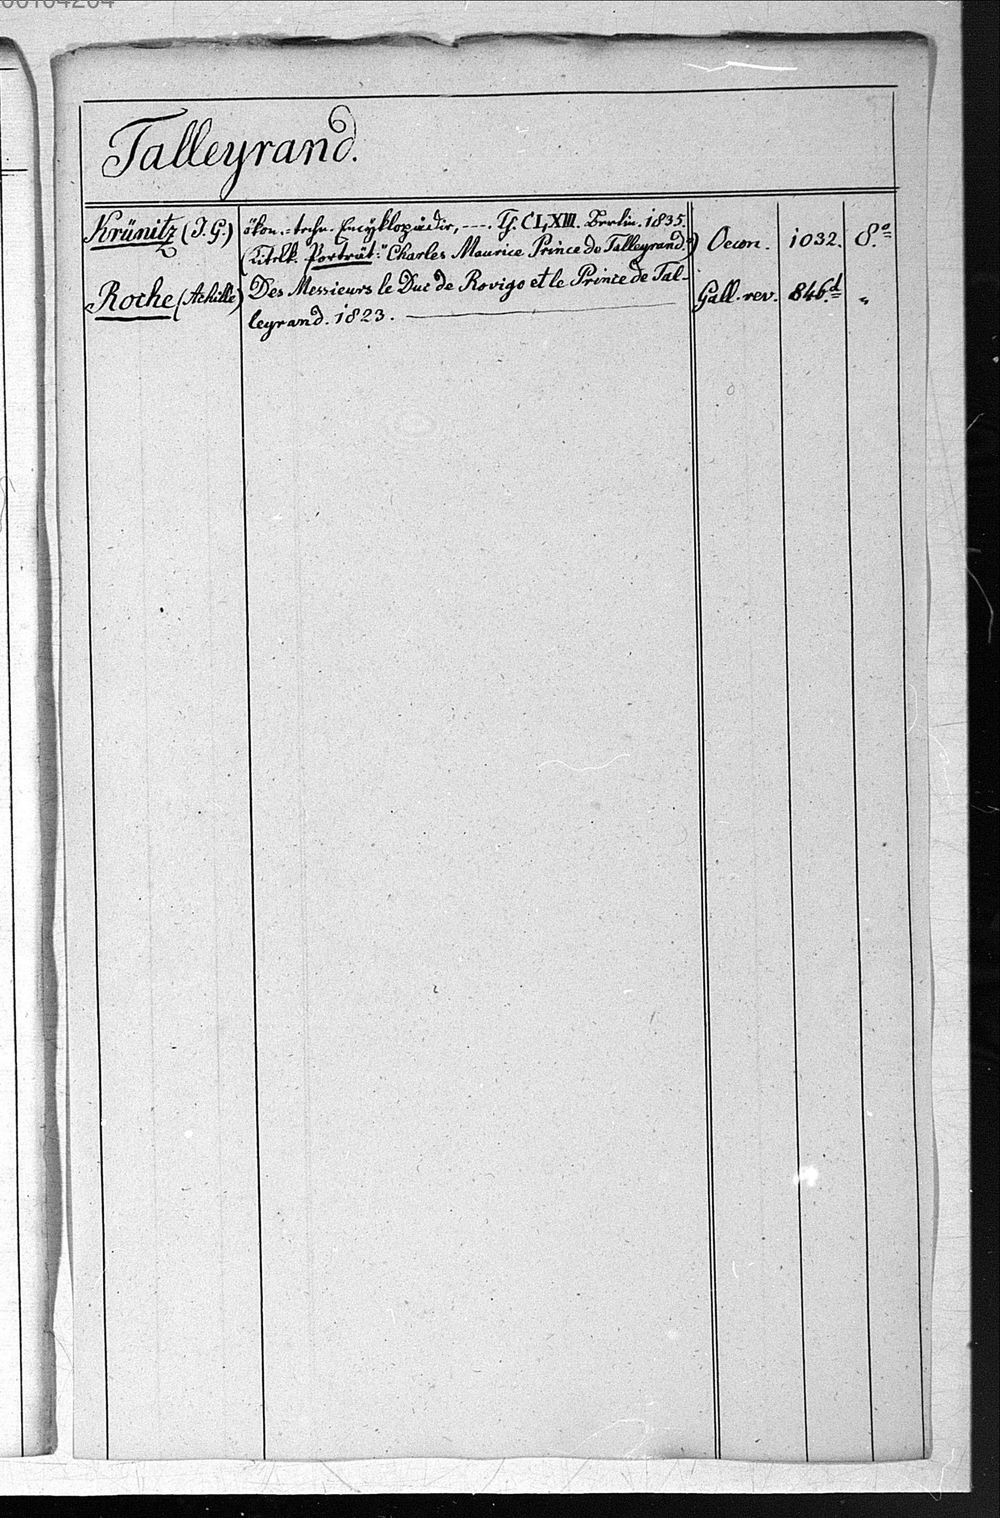 Talleyrand.
Krünitz (J. G.) ökon.-techn. Encyklopædie, ---. Th. CLXIII. Berlin. 1835.
(Titelk. Porträt: "Charles Maurice Prince de Talleyrand.") Oecon. 1032. 8.o
Roche (Achille) Des Messieurs le Duc de Rovigo et le Prince de Tal- Gall. rev. 846.d "
leyrand. 1823.